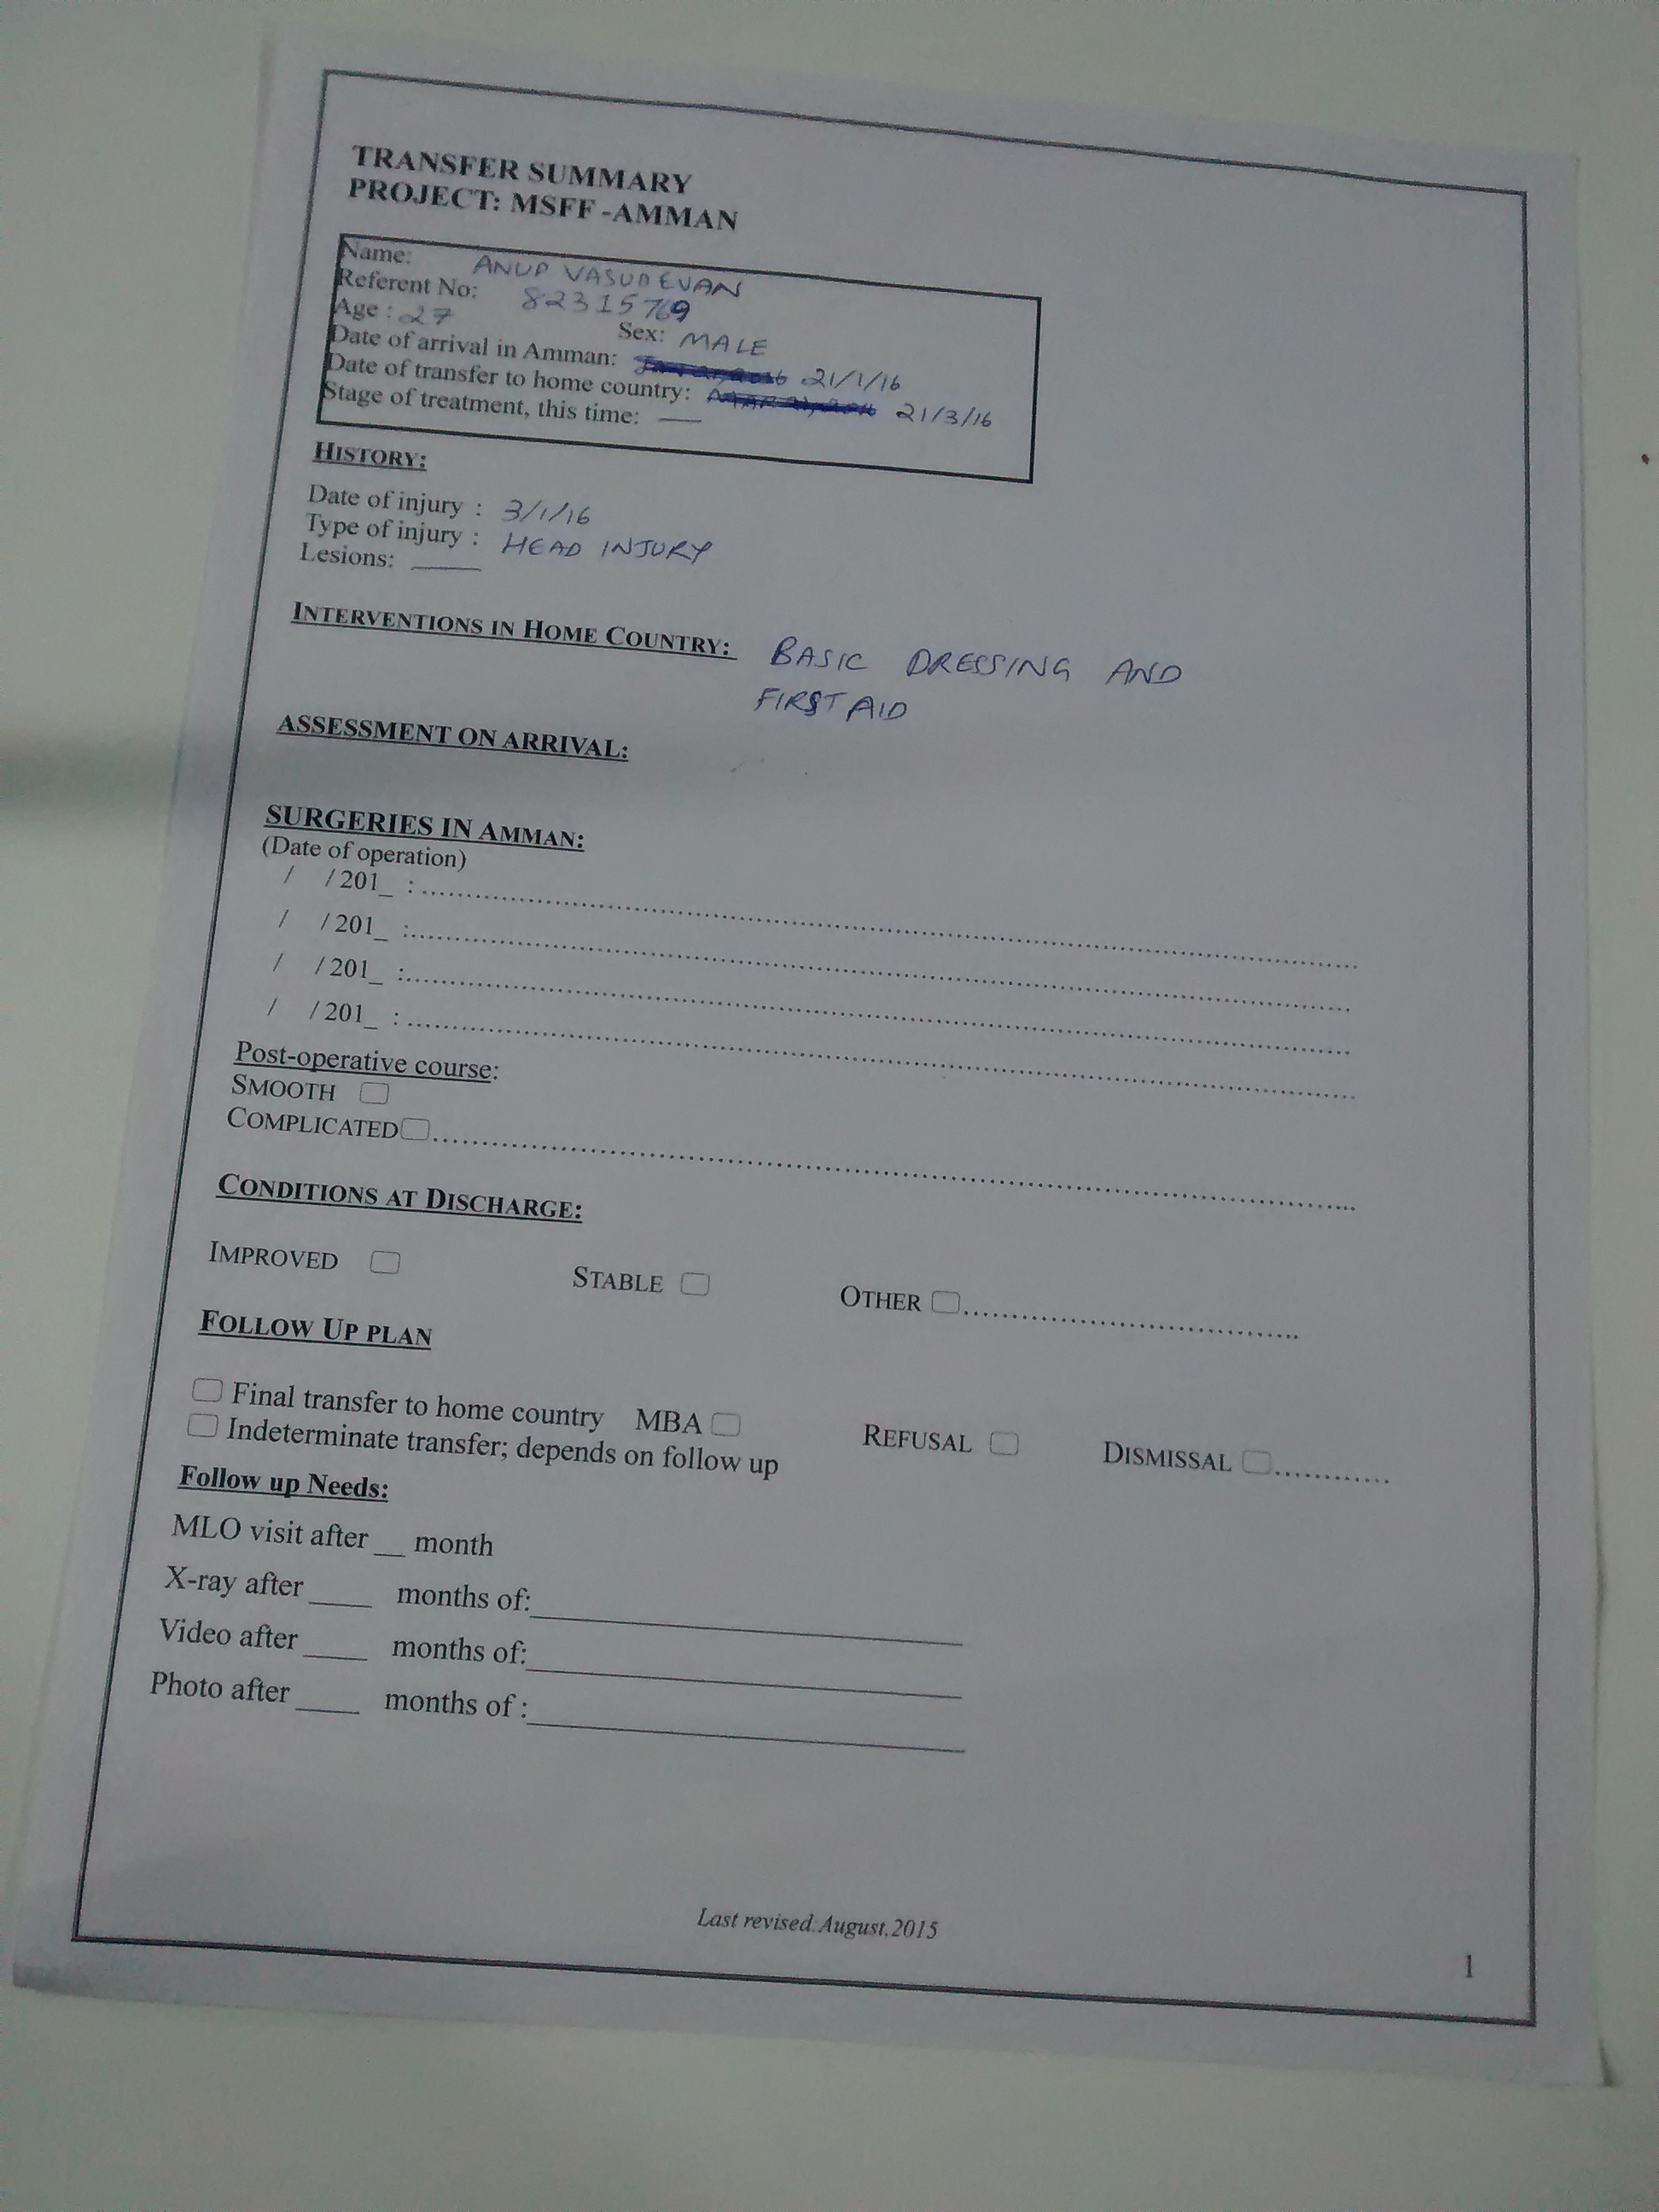 TRANSFER SUMMARY
PROJECT: MSFF -AMMAN
Name: ANUP VASUDEVAN
Referent No: 82315769
Age : 27 Sex: MALE
Date of arrival in Amman: 21/1/16
Date of transfer to home country: 21/3/16
Stage of treatment, this time: ___
HISTORY:
Date of injury : 3/1/16
Type of injury : HEAD INJURY
Lesions: _____
INTERVENTIONS IN HOME COUNTRY: BASIC DRESSING AND
FIRST AID
ASSESSMENT ON ARRIVAL:
SURGERIES IN AMMAN:
(Date of operation)
/ / 201_ :..........
/ / 201_ :..........
/ / 201_ :..........
/ / 201_ :..........
Post-operative course:
SMOOTH
COMPLICATED..........
CONDITIONS AT DISCHARGE:
IMPROVED STABLE OTHER..........
FOLLOW UP PLAN
Final transfer to home country MBA REFUSAL DISMISSAL............
Indeterminate transfer; depends on follow up
Follow up Needs:
MLO visit after __ month
X-ray after ____ months of:__________
Video after ____ months of:__________
Photo after ____ months of :__________
Last revised.August.2015
1